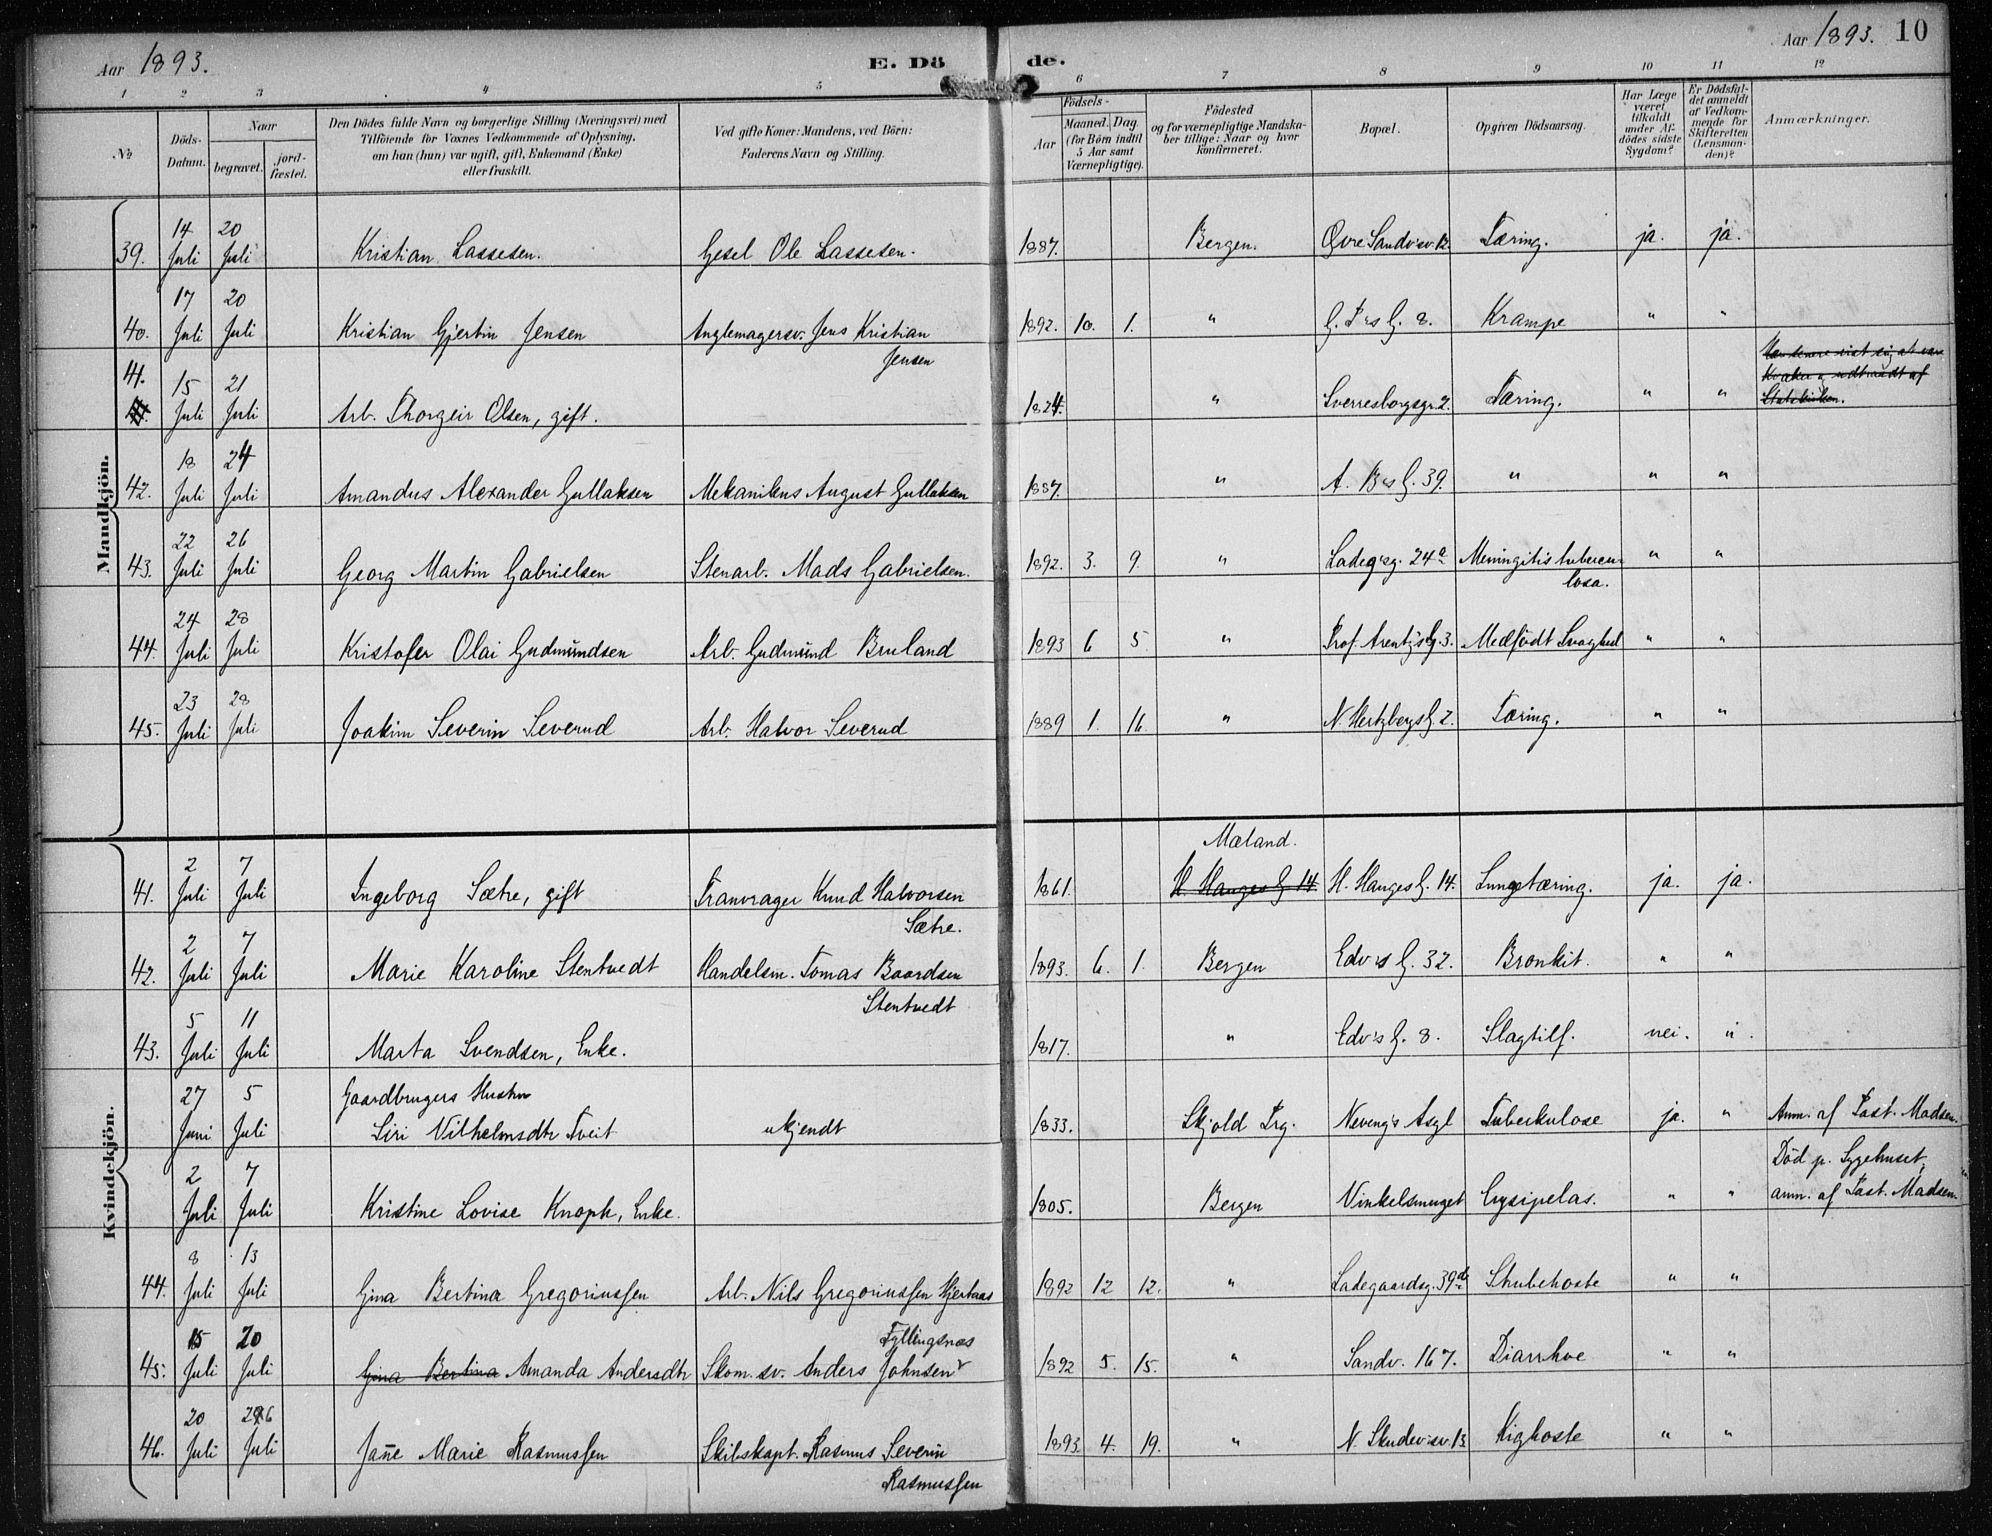 Aar 1893.
E. Dö de.
Aar 1893. 10
1 2 3 4 5 6 7 8 9 10 11 12
No
Döds-Datum.
Naar
begravet.
jord-fæstet.
Den Dödes fulde Navn og borgerlige Stilling (Næringsvei) med
Tilföiende for Voxnes Vedkommende af Oplysning,
om han (hun) var ugift, gift, Enkemand (Enke)
eller fraskilt.
Ved gifte Koner: Mandens, ved Börn:
Faderens Navn og Stilling.
Födsels-
Aar
Maaned. Dag
(for Börn indtil
5 Aar samt
Værnepligtige).
Födested
og for værnepligtige Mandska-
ber tillige: Naar og hvor
konfirmeret.
Bopæl.
Opgiven Dödsaarsag.
Har Læge
været
tilkaldt
under Af-
dödes sidste
Sygdom?
Er Dödsfal-
det anmeldt
af Vedkom-
mende for
Skifteretten
(Lensman-
den)?
Anmærkninger.
Mandkjön.
39. 14 Juli 20 Juli Kristian Lassesen. Gesel Ole Lassesen. 1887. Bergen. Øvre Sandv'sv. 12. Tæring. ja. ja.
40. 17 Juli 20 Juli Kristian Gjertin Jensen Anglemagersv. Jens Kristian Jensen 1892. 10. 1. " G. P's G. 8. Krampe " "
41. 15 Juli 21 Juli Arb. Thorgeir Olsen, gift. 1824. " Sverresborgsgr. 2. Tæring. " " Har senere vist sig at være Kvæker og udtraadt af Statskirken.
42. 18 Juli 24 Juli Amandus Alexander Gullaksen Mekanikus August Gullaksen 1887. " A. B's G. 39. " " "
43. 22 Juli 26 Juli Georg Martin Gabrielsen Stenarb. Mads Gabrielsen. 1892. 3. 9. " Ladeg'sg. 24a Meningitis tubercu-losa. " "
44. 24 Juli 28 Juli Kristofer Olai Gudmundsen Arb. Gudmund Bruland 1893 6 5. " Prof. Arentz's G. 3. Medfödt Svaghed " "
45. 23 Juli 28 Juli Joakim Severin Severud Arb. Halvor Severud 1889 1. 16. " N. Hertzbergs G. 2. Tæring. " "
Kvindekjön.
41. 2 Juli 7 Juli Ingeborg Sætre, gift Tranvrager Knud Halvorsen Sætre. 1861. Mæland. H. Hauges G. 14. H. Hauges G. 14. Lungetæring. ja. ja.
42. 2 Juli 7 Juli Marie Karoline Stentvedt Handelsm. Tomas Baardsen Stentvedt 1893. 6. 1. Bergen Edv's G. 32. Bronkit. " "
43. 5 Juli 11 Juli Marta Svendsen, Enke. 1817. " Edv's G. 8. Slagtilf. nei. "
27 Juni 5 Juli Gaardbrugers Hustru Siri Vilhelmsdtr Tveit ukjendt 1833. Skjold Prg. Neveng's Asyl Tuberkulose ja. " Anm. af Past. Madsen.
2 Juli 7 Juli Kristine Lovise Knoph, Enke. 1805. Bergen Vinkelsmuget Erysipelas. " " Död p. Sygehuset, anm. af Past. Madsen
44. 8 Juli 13 Juli Gina Bertina Gregoriussen Arb. Nils Gregoriussen Hjertaas 1892 12 12. " Ladegaardsg. 39 Strubehoste " "
45. 15 Juli 20 Juli Gina Bertina Amanda Andersdtr Skom. sv. Anders Johnsen Fyllingsnæs 1892 5. 15. " Sandv. 167. Diarrhoe " "
46. 20 Juli 26 Juli Jane Marie Rasmussen Skibskapt. Rasmus Severin Rasmussen 1893 4. 19. " N. Skudev'sv. 13 Kighoste " "